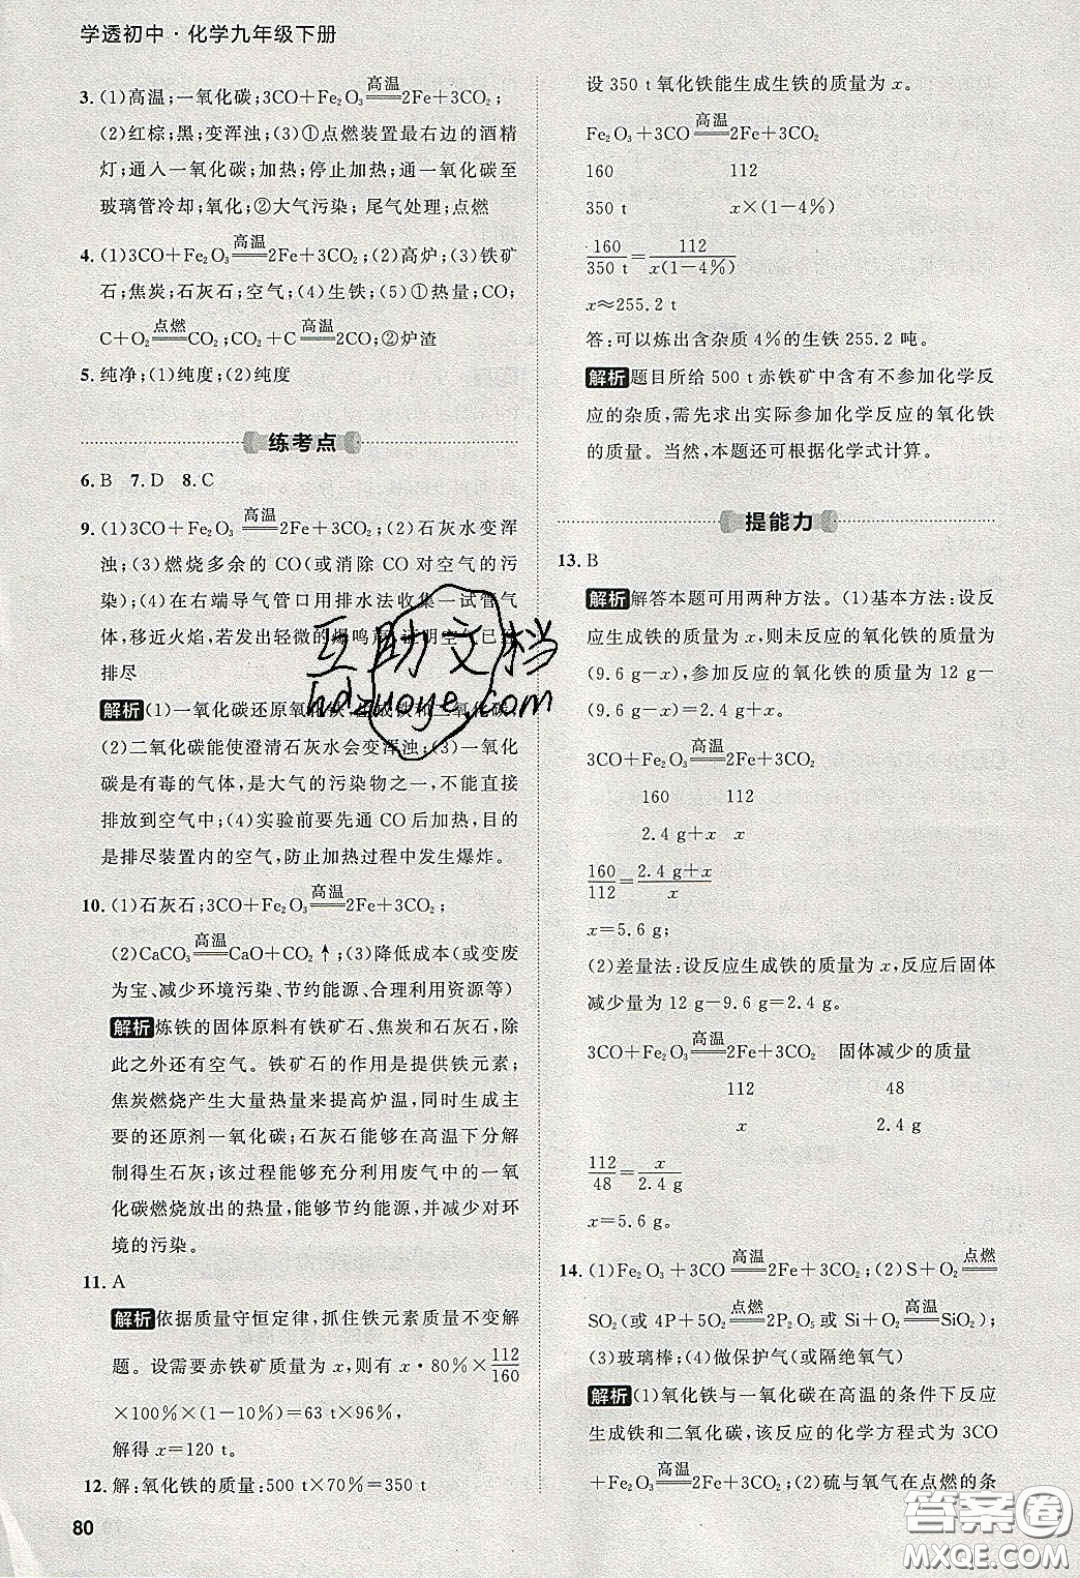 学透初中·化学九年级下册
3. (1)高温;一氧化碳;3CO+Fe₂O₃ 高温 2Fe+3CO₂;
(2)红棕;黑;变浑浊;(3)①点燃装置最右边的酒精
灯;通入一氧化碳;加热;停止加热;通一氧化碳至
玻璃管冷却;氧化;②大气污染;尾气处理;点燃
4. (1)3CO+Fe₂O₃ 高温 2Fe+3CO₂;(2)高炉;(3)铁矿
石;焦炭;石灰石;空气;(4)生铁;(5)①热量;CO;
C+O₂ 点燃 CO₂;CO₂+C 高温 2CO;②炉渣
5. 纯净;(1)纯度;(2)纯度
练考点
6. B 7. D 8. C
9. (1)3CO+Fe₂O₃ 高温 2Fe+3CO₂;(2)石灰水变浑
浊;(3)燃烧多余的CO(或消除CO对空气的污
染);(4)在右端导气管口用排水法收集一试管气
体,移近火焰,若发出轻微的爆鸣声,证明空气已经
排尽
解析 (1)一氧化碳还原氧化铁,生成铁和二氧化碳;
(2)二氧化碳能使澄清石灰水会变浑浊;(3)一氧化
碳是有毒的气体,是大气的污染物之一,不能直接
排放到空气中;(4)实验前要先通CO后加热,目的
是排尽装置内的空气,防止加热过程中发生爆炸。
10. (1)石灰石;3CO+Fe₂O₃ 高温 2Fe+3CO₂;
(2)CaCO₃ 高温 CaO+CO₂↑;(3)降低成本(或变废
为宝、减少环境污染、节约能源、合理利用资源等)
解析 炼铁的固体原料有铁矿石、焦炭和石灰石,除
此之外还有空气。铁矿石的作用是提供铁元素;
焦炭燃烧产生大量热量来提高炉温,同时生成主
要的还原剂一氧化碳;石灰石能够在高温下分解
制得生石灰;该过程能够充分利用废气中的一氧
化碳燃烧放出的热量,能够节约能源,并减少对环
境的污染。
11. A
解析 依据质量守恒定律,抓住铁元素质量不变解
题。设需要赤铁矿质量为x,则有x·80%×112/160
×100%×(1-10%)=63 t×96%,
解得x=120 t。
12. 解:氧化铁的质量:500 t×70%=350 t
80
设350 t氧化铁能生成生铁的质量为x。
Fe₂O₃+3CO 高温 2Fe+3CO₂
160 112
350 t x×(1-4%)
160/350 t=112/x(1-4%)
x≈255.2 t
答:可以炼出含杂质4%的生铁255.2吨。
解析 题目所给500 t赤铁矿中含有不参加化学反
应的杂质,需先求出实际参加化学反应的氧化铁
的质量。当然,本题还可根据化学式计算。
提能力
13. B
解析 解答本题可用两种方法。(1)基本方法:设反
应生成铁的质量为x,则未反应的氧化铁的质量为
(9.6 g-x),参加反应的氧化铁的质量为12 g-
(9.6 g-x)=2.4 g+x,
3CO+Fe₂O₃ 高温 2Fe+3CO₂
160 112
2.4 g+x x
160/112=2.4 g+x/x
x=5.6 g;
(2)差量法:设反应生成铁的质量为x,反应后固体
减少量为12 g-9.6 g=2.4 g。
3CO+Fe₂O₃ 高温 2Fe+3CO₂ 固体减少的质量
112 48
x 2.4 g
112/48=x/2.4 g
x=5.6 g。
14. (1)Fe₂O₃+3CO 高温 2Fe+3CO₂;(2)S+O₂ 点燃
SO₂(或4P+5O₂ 点燃 2P₂O₅或Si+O₂ 高温 SiO₂)
(3)玻璃棒;(4)做保护气(或隔绝氧气)
解析 (1)氧化铁与一氧化碳在高温的条件下反应
生成铁和二氧化碳,该反应的化学方程式为3CO
+Fe₂O₃ 高温 2Fe+3CO₂;(2)硫与氧气在点燃的条
互助文档
hdzuoye.com
答案圈
MXQE.COM